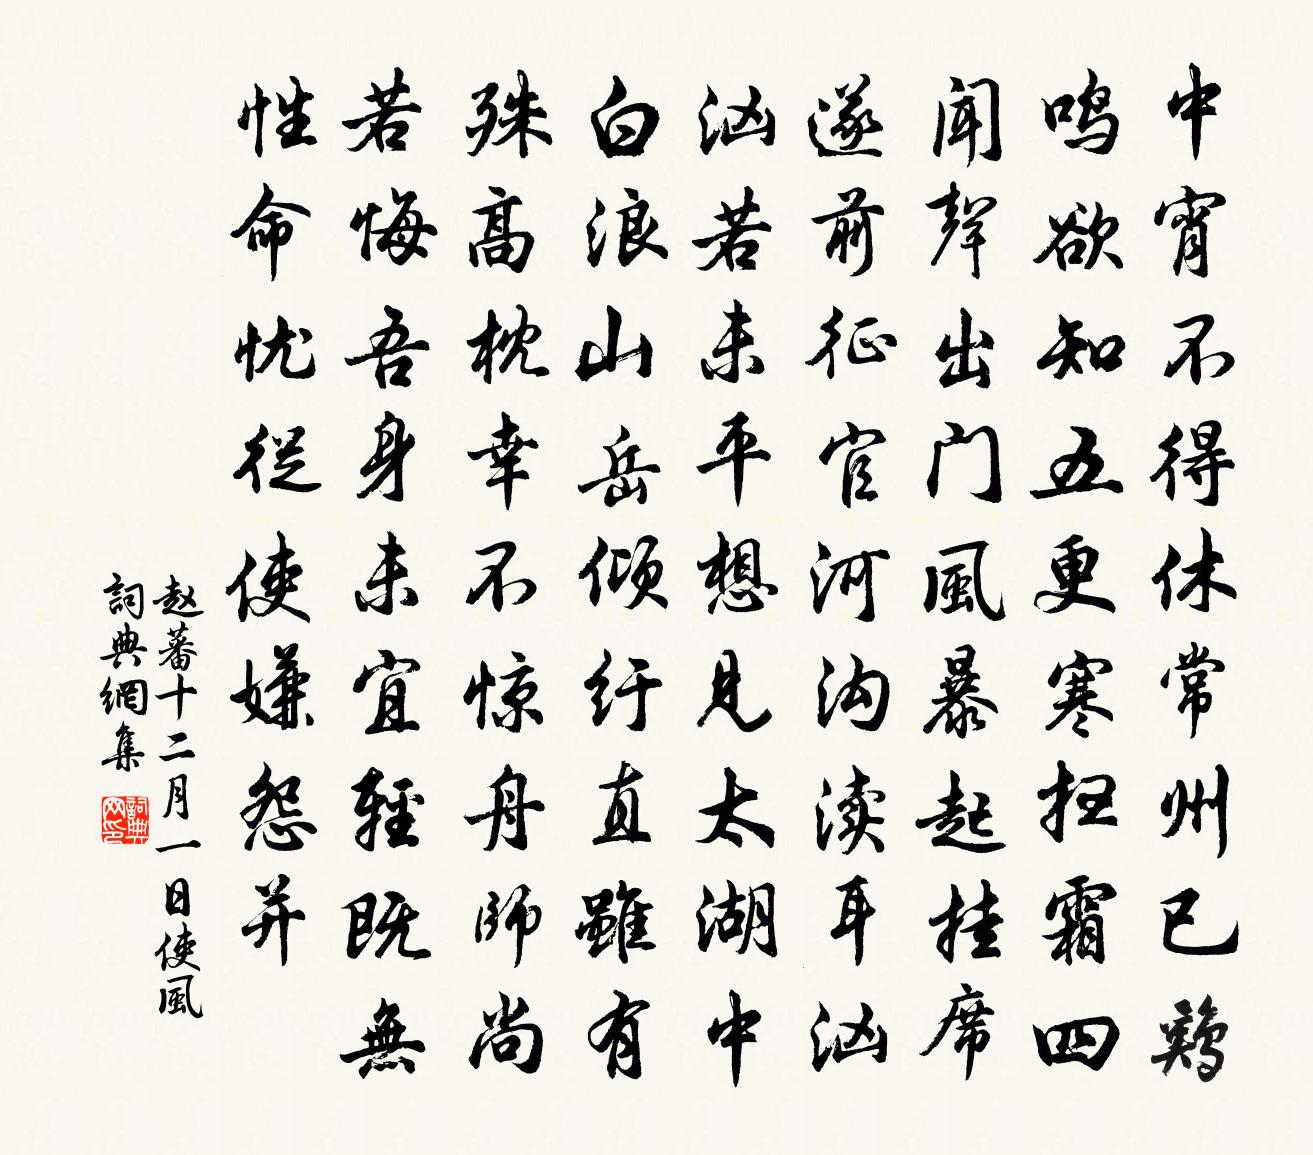 中宵不得休常州已鷄
鸣欲知五更寒扫霜四
闻聲出门風暴起挂席
遂前征官河沟渎耳汹
汹若未平想见太湖中
白浪山岳倾纡直雖有
殊高枕幸不惊舟師尚
若悔吾身未宜輕既無
性命忧從使嫌怨并
赵蕃十二月一日使風
詞典網集
詞典网印